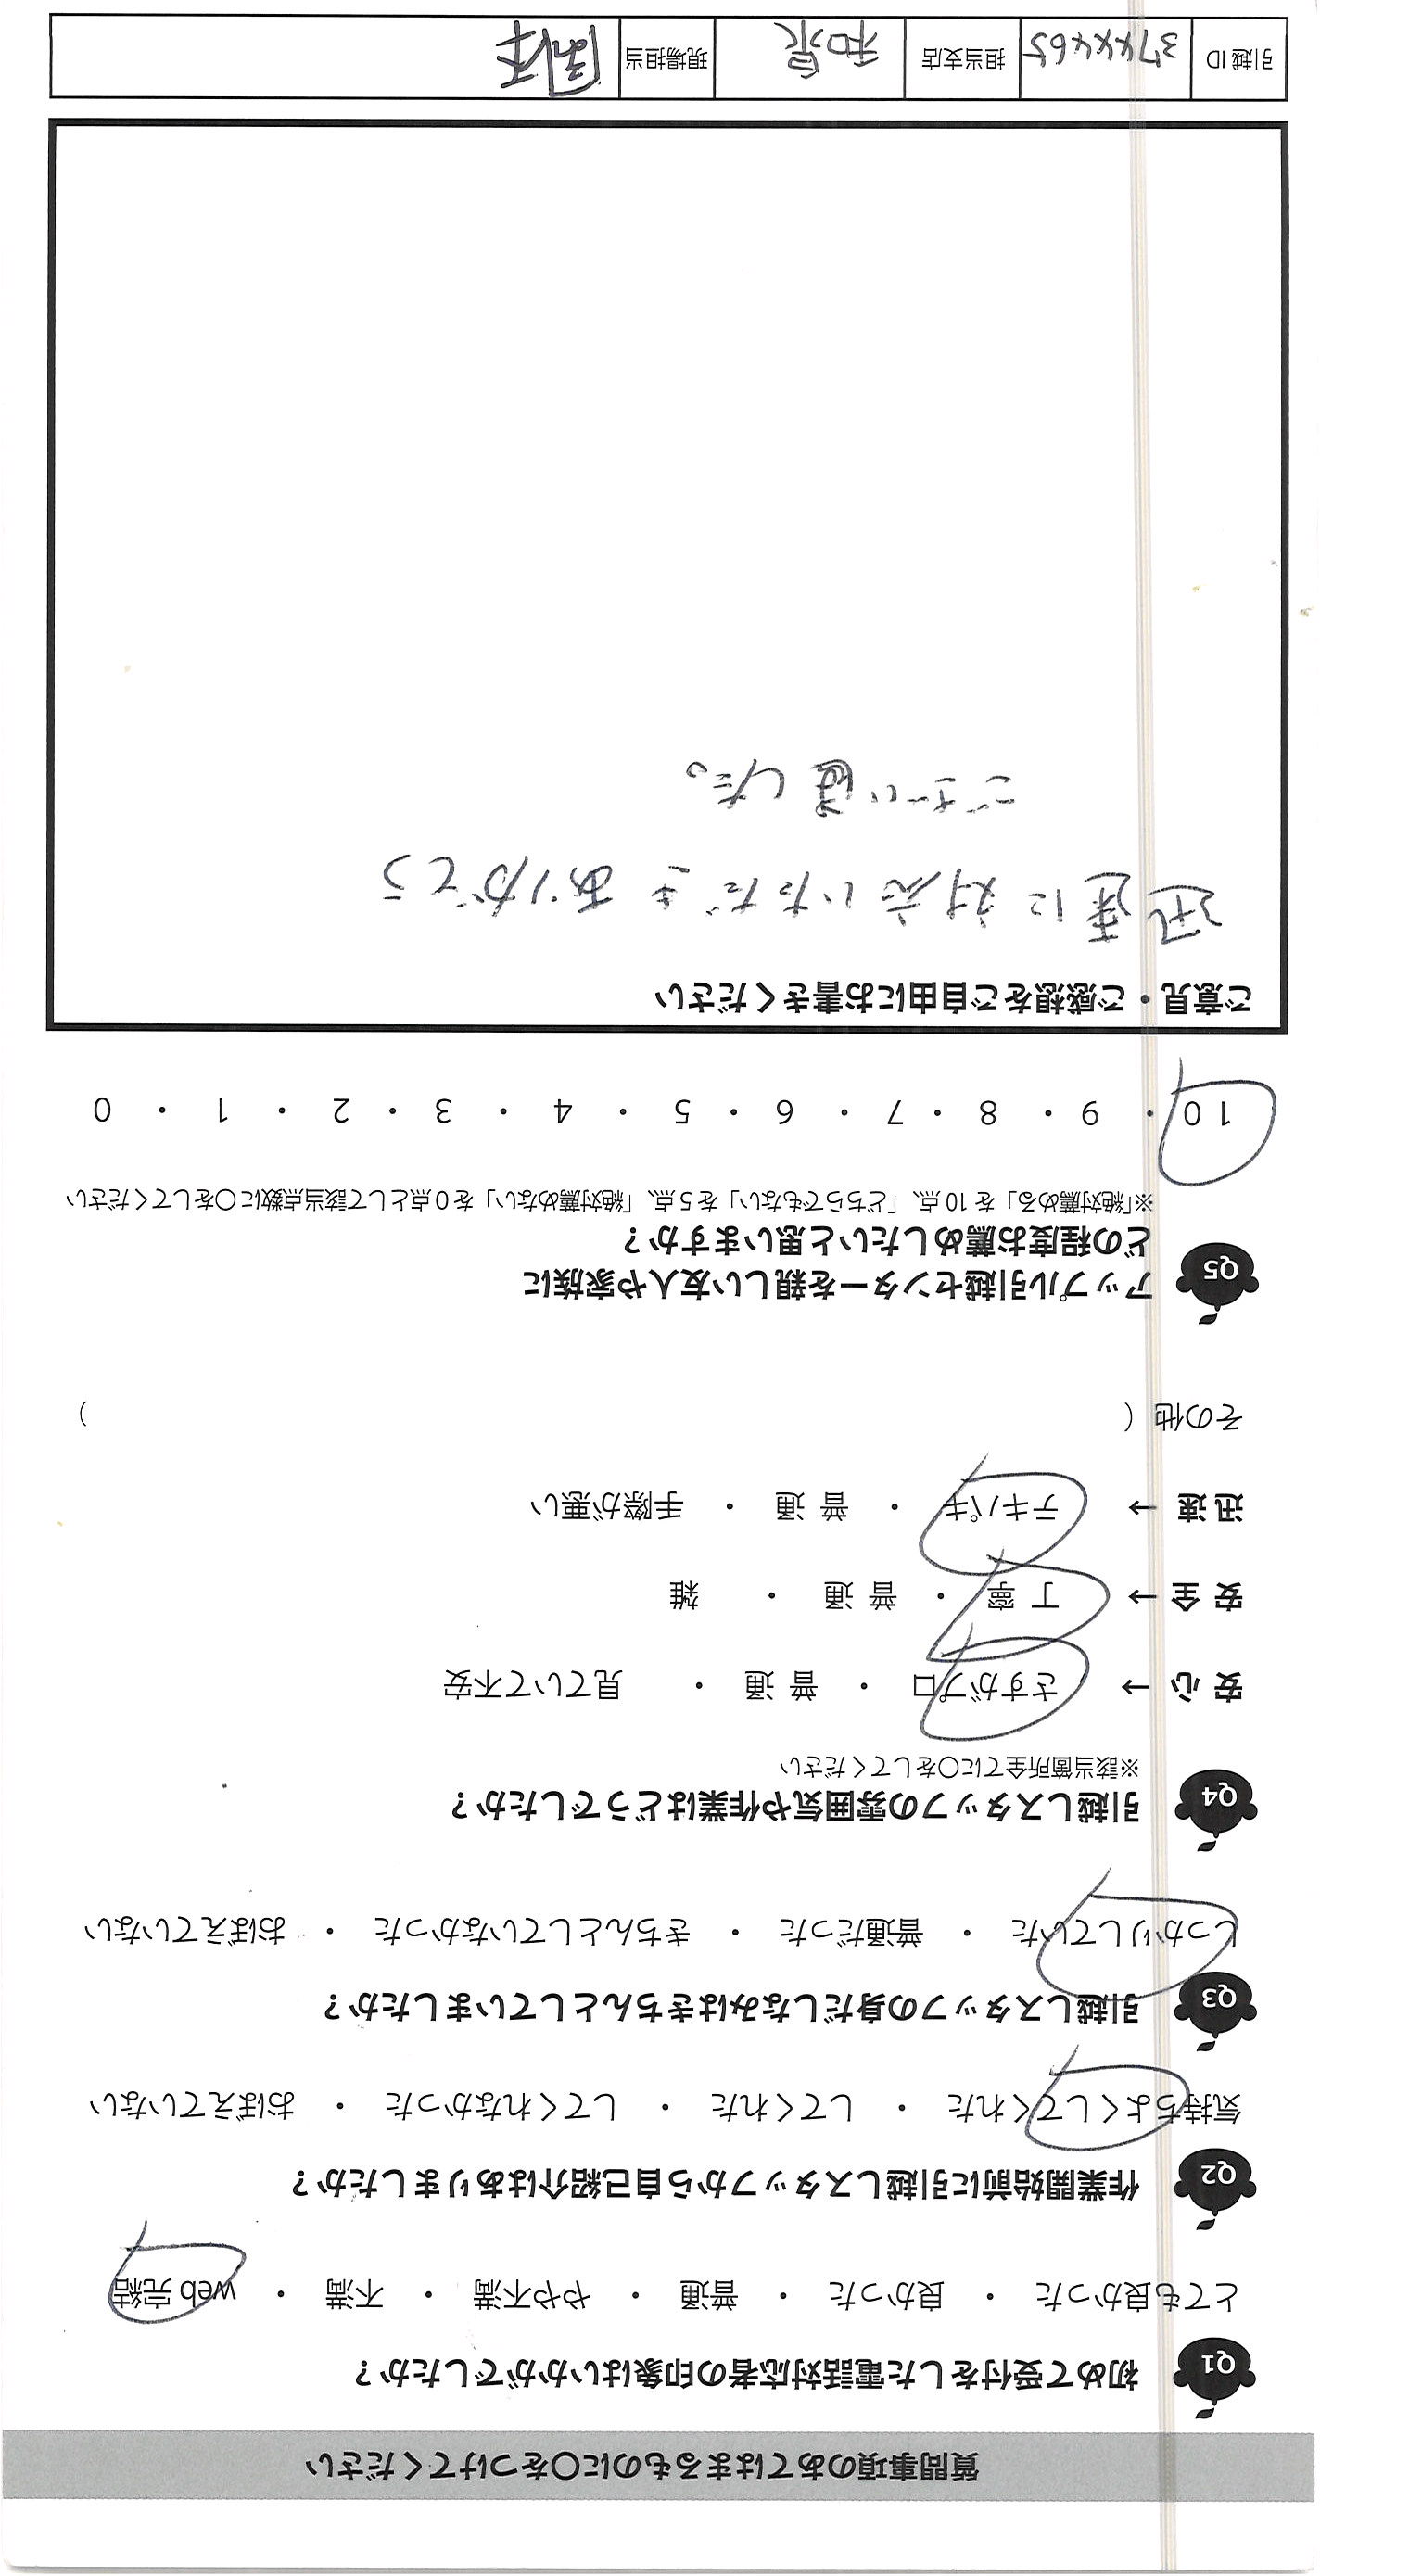 質問事項のあてはまるものに〇をつけてください
Q1 初めて受付をした電話対応者の印象はいかがでしたか？
とても良かった ・ 良かった ・ 普通 ・ やや不満 ・ 不満 ・ web 完結
Q2 作業開始前に引越しスタッフから自己紹介はありましたか？
気持ちよくしてくれた ・ してくれた ・ してくれなかった ・ おぼえていない
Q3 引越しスタッフの身だしなみはきちんとしていましたか？
しっかりしていた ・ 普通だった ・ きちんとしていなかった ・ おぼえていない
Q4 引越しスタッフの雰囲気や作業はどうでしたか？
※該当箇所全てに〇をしてください
安 心 → さすがプロ ・ 普 通 ・ 見ていて不安
安 全 → 丁 寧 ・ 普 通 ・ 雑
迅 速 → テキパキ ・ 普 通 ・ 手際が悪い
その他（ ）
Q5 アップル引越センターを親しい友人や家族に
どの程度お薦めしたいと思いますか？
※「絶対薦める」を 10 点、「どちらでもない」を 5 点、「絶対薦めない」を 0 点として該当点数に〇をしてください
10 ・ 9 ・ 8 ・ 7 ・ 6 ・ 5 ・ 4 ・ 3 ・ 2 ・ 1 ・ 0
ご意見・ご感想をご自由にお書きください
迅速に対応いただきありがとう
ございました。
引越 ID 3744465 担当支店 和泉 現場担当